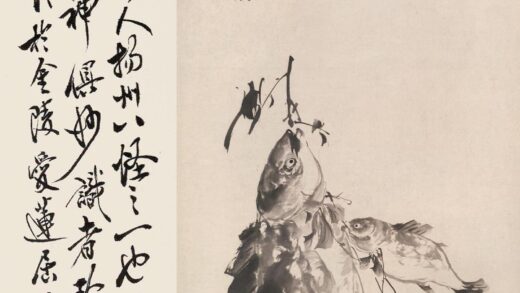 人扬州八怪之一也
神俱妙識者
於金陵愛蓮居